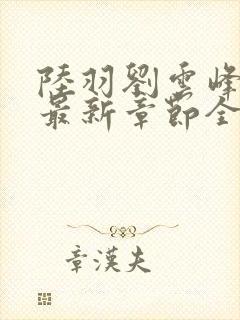 陸羽劉雲峰
最新章節全
章漢夫